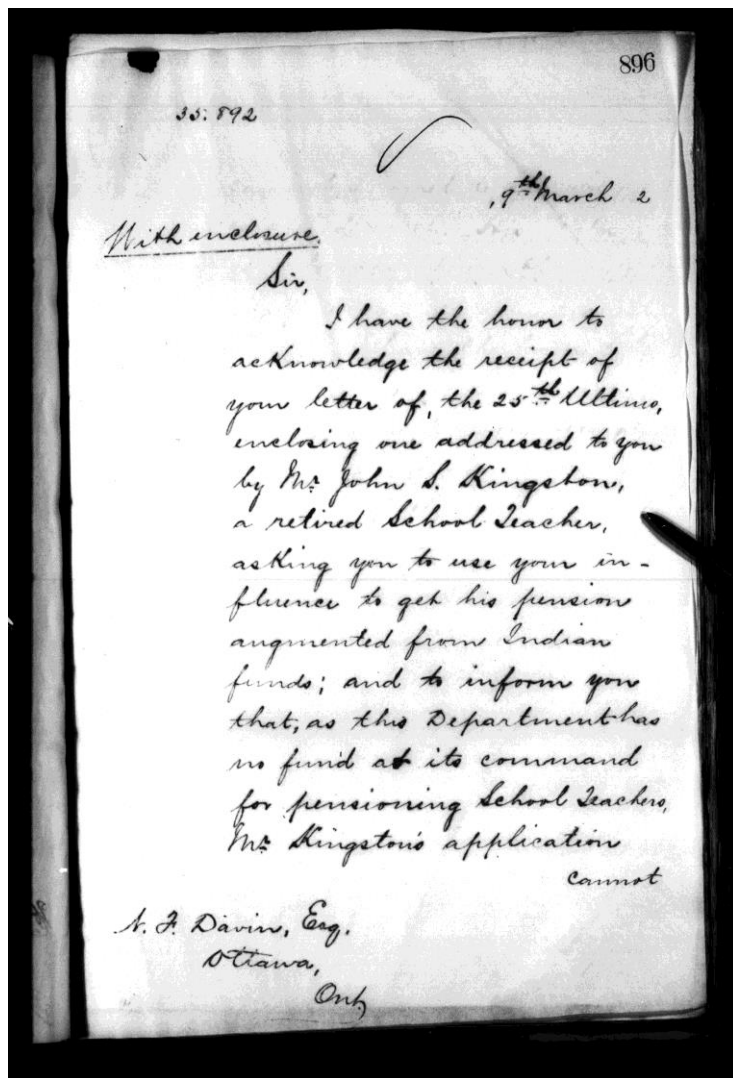 896
35.892
9th March 2
With enclosure.
Sir,
I have the honor to
acknowledge the receipt of
your letter of, the 25th Ultimo,
enclosing one addressed to you
by Mr. John S. Kingston,
a retired School Teacher,
asking you to use your in-
fluence to get his pension
augmented from Indian
funds; and to inform you
that, as this Department has
no fund at its command
for pensioning School Teachers,
Mr. Kingston's application
cannot
N. F. Davin, Esq.
Ottawa,
Ont,